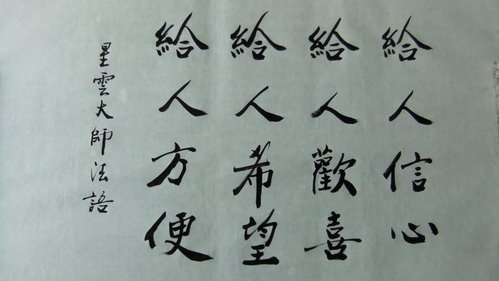 給人信心
給人歡喜
給人希望
給人方便
星雲大師法語